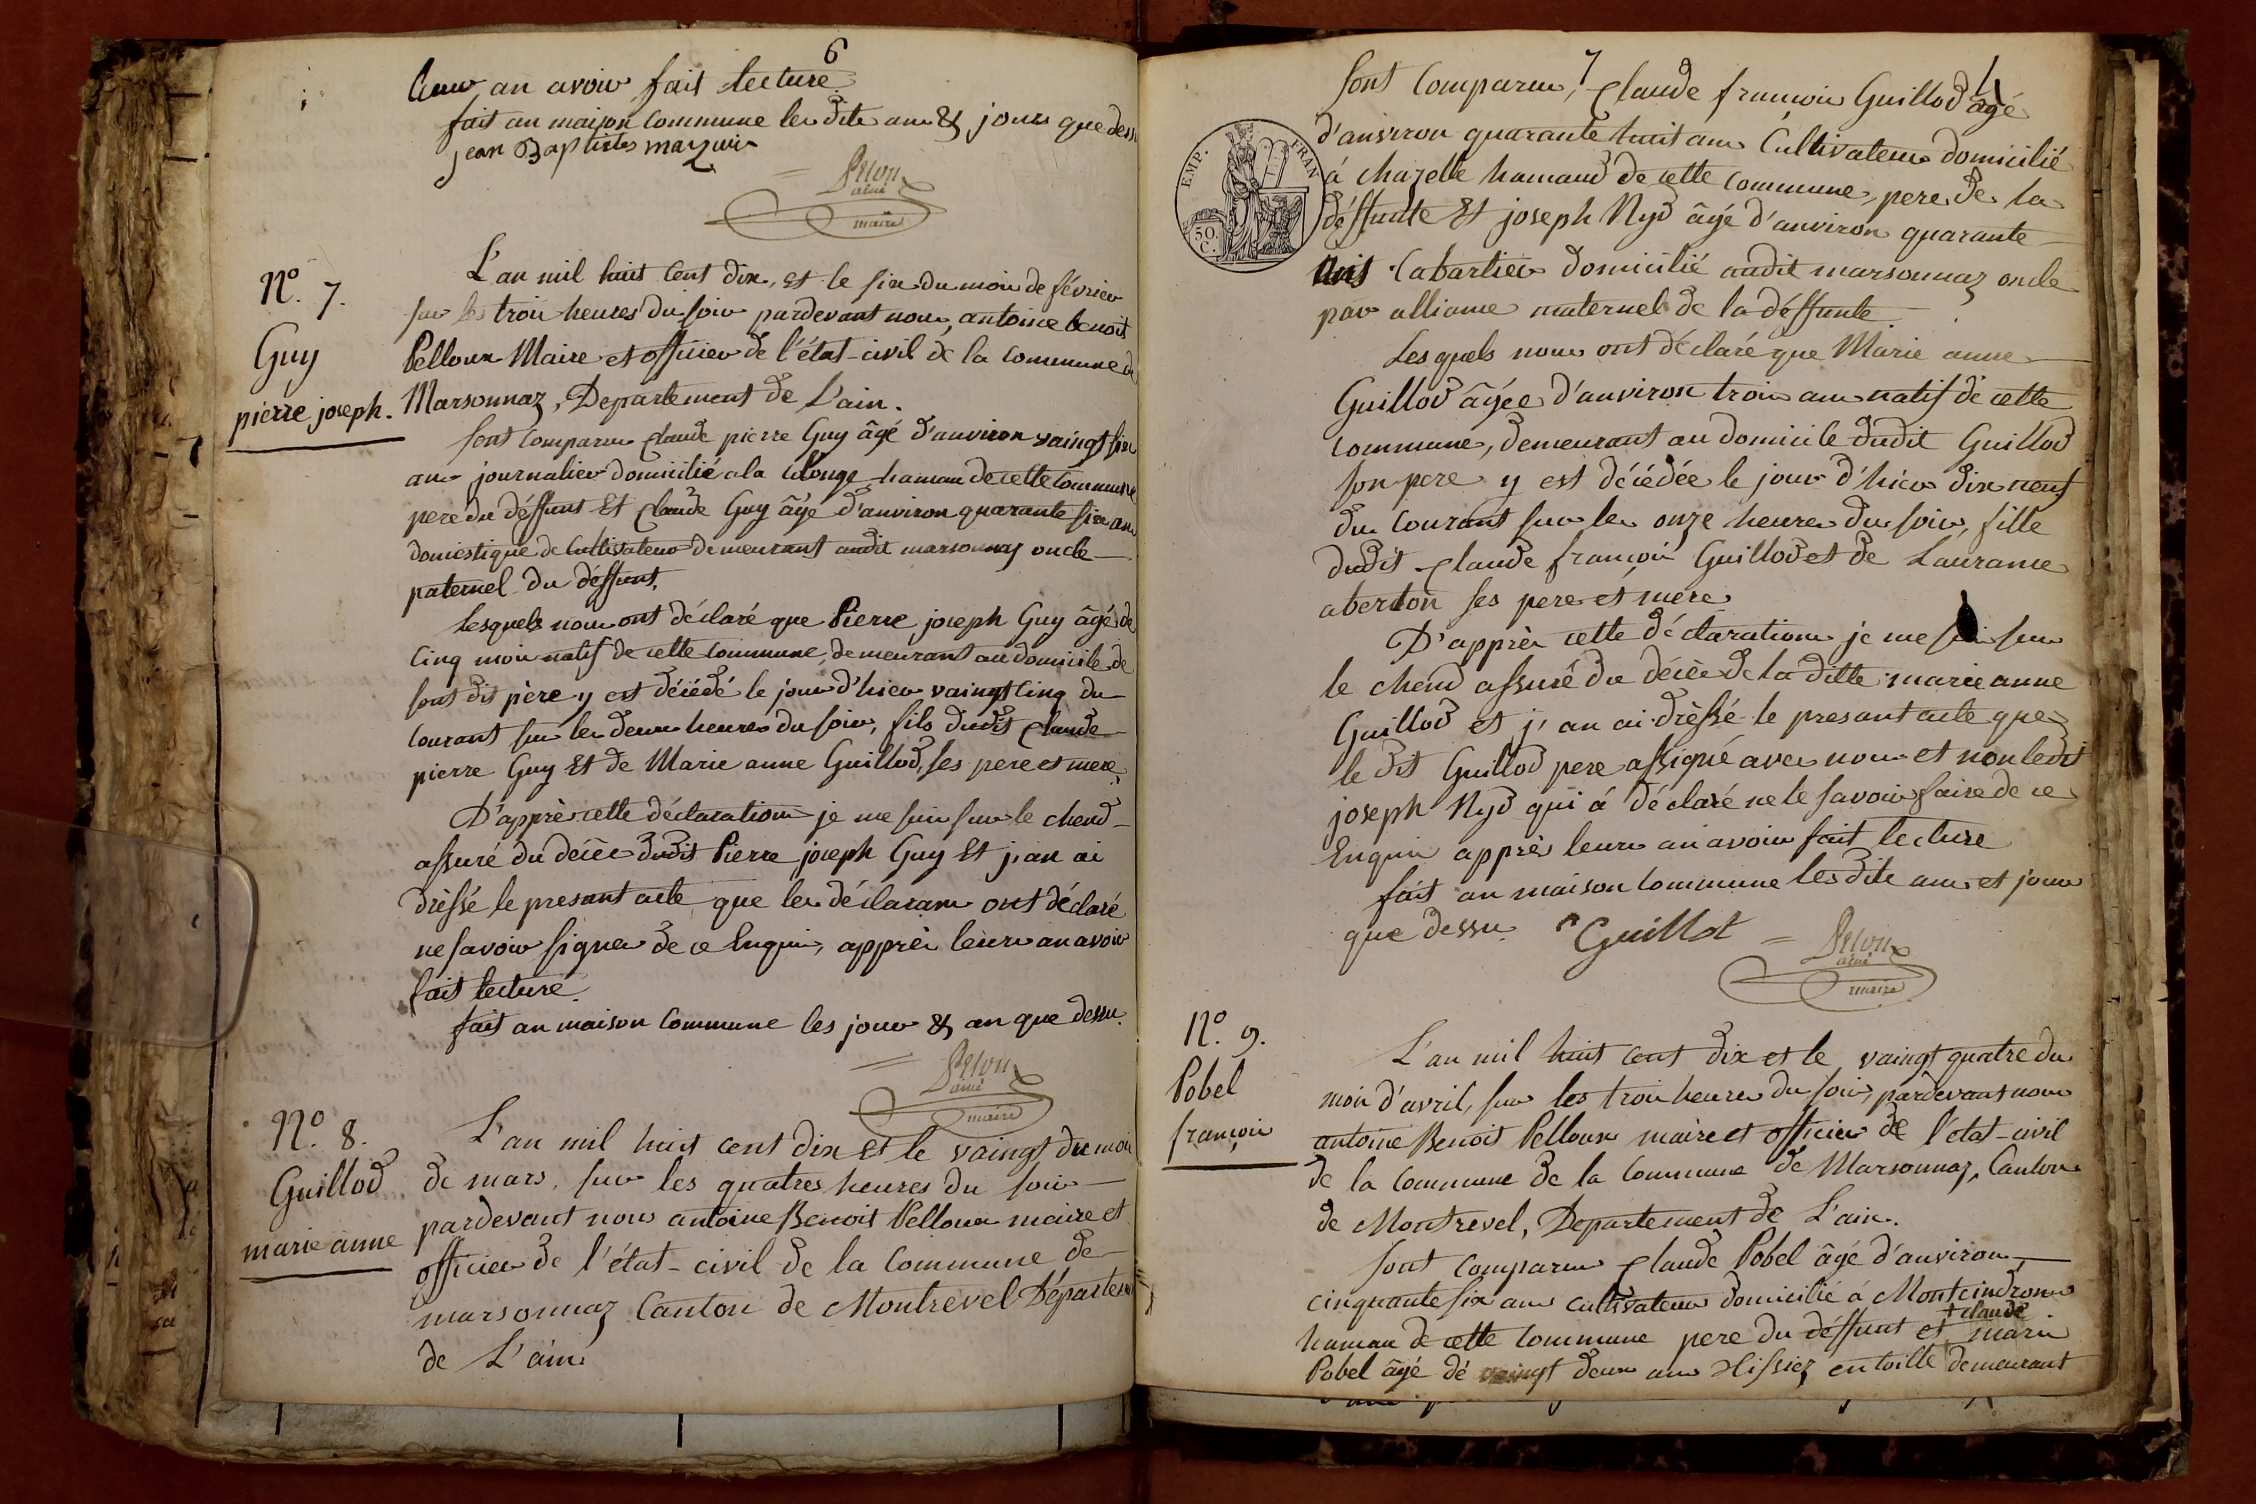 6
leur an avoir fait lecture.
fait an maison commune les dits ans & jours que dessu
jean Baptistes mazuir
aîné
maire
N.º 7.
Guy
pierre joseph.
L'an mil huit cent dix, et le six du mois de février
sur les trois heures du soir pardevant nous, antoine benoit
Pelloux Maire et officier de l'état-civil de la commune de
Marsonnaz, Departement de L'ain.
sont comparus claude pierre Guy âgé d'anviron vaingt six
ans journalier domicilié a la hamau de cette commune
pere du déffunt Et claude Guy âgé d'anviron quarante six ans
domestique de cultivateur demeurant audit marsonnaz oncle
paternel du déffunt.
Lesquels nous ont déclaré que Pierre joseph Guy âgé de
cinq mois natif de cette commune, demeurant au domicile de
sont dit père y est décédé le jour d'hier vaingt cinq du
courant sur les deux heures du soir, fils dudit claude
pierre Guy Et de Marie anne Guillod, ses pere et mere.
D'apprès cette déclaration je me suis sur le chend
assuré du décès dudit Pierre joseph Guy Et j'an ai
drèssé le presant acte que les déclarans ont déclaré
ne savoir signer de ce Enquis, apprès leurs an avoir
fait lecture.
fait an maison commune les jour & an que dessu.
aîné
maire
N.º 8.
Guillod
marie anne
L'an mil huit cent dix Et le vaingt du mois
de mars, sur les quatres heures du soir
pardevant nous antoine Benoit Pelloux maire et
officier de l'état-civil de la commune de
marsonnaz Canton de Montrevel Départem
de L'ain
7
4
EMP. FRAN
50. C.
sont comparus, claude françois Guillod âgé
d'anviron quarante huit ans Cultivateur domicilié
à chazelle hamaud de cette commune, pere de la
déffunte Et joseph Nyd âgé d'anviron quarante
Cabartier domicilié audit marsonnaz oncle
par alliance maternel de la déffunte
Lesquels nous ont déclaré que Marie anne
Guillod âgée d'anviron trois ans natif de cette
commune, demeurant au domicile dudit Guillod
son pere y est décédée le jour d'hier dix neuf
du courant sur les onze heures du soir, fille
dudit claude françois Guillod et de Laurance
aberton ses pere et mére.
D'apprès cette déclaration je me suis sur
le chend assuré du décès de la ditte marie anne
Guillod et j'an ai drèssé le presant acte que
le dit Guillod pere assigné avec nous et non ledit
joseph Nyd qui á déclaré ne le savoir faire de ce
Enquis apprès leurs an avoir fait lecture
fait an maison commune les dits ans et jour
que dessu. Guillot
aîné
maire
N.º 9.
Pobel
françois
L'an mil huit cent dix et le vaingt quatre du
mois d'avril, sur les trois heures du soir, pardevant nous
antoine Benoit Pelloux maire et officier de l'état-civil
de la commune de la commune de Marsonnaz, Canton
de Montrevel, Departement de L'ain.
sont comparus claude Pobel âgé d'anviron
cinquante six ans cultivateur domicilié á Montcindron
hamau de cette commune pere du déffunt et + marie
+ claude
Pobel âgé dé vaingt deux ans tissiez en toille demeurant